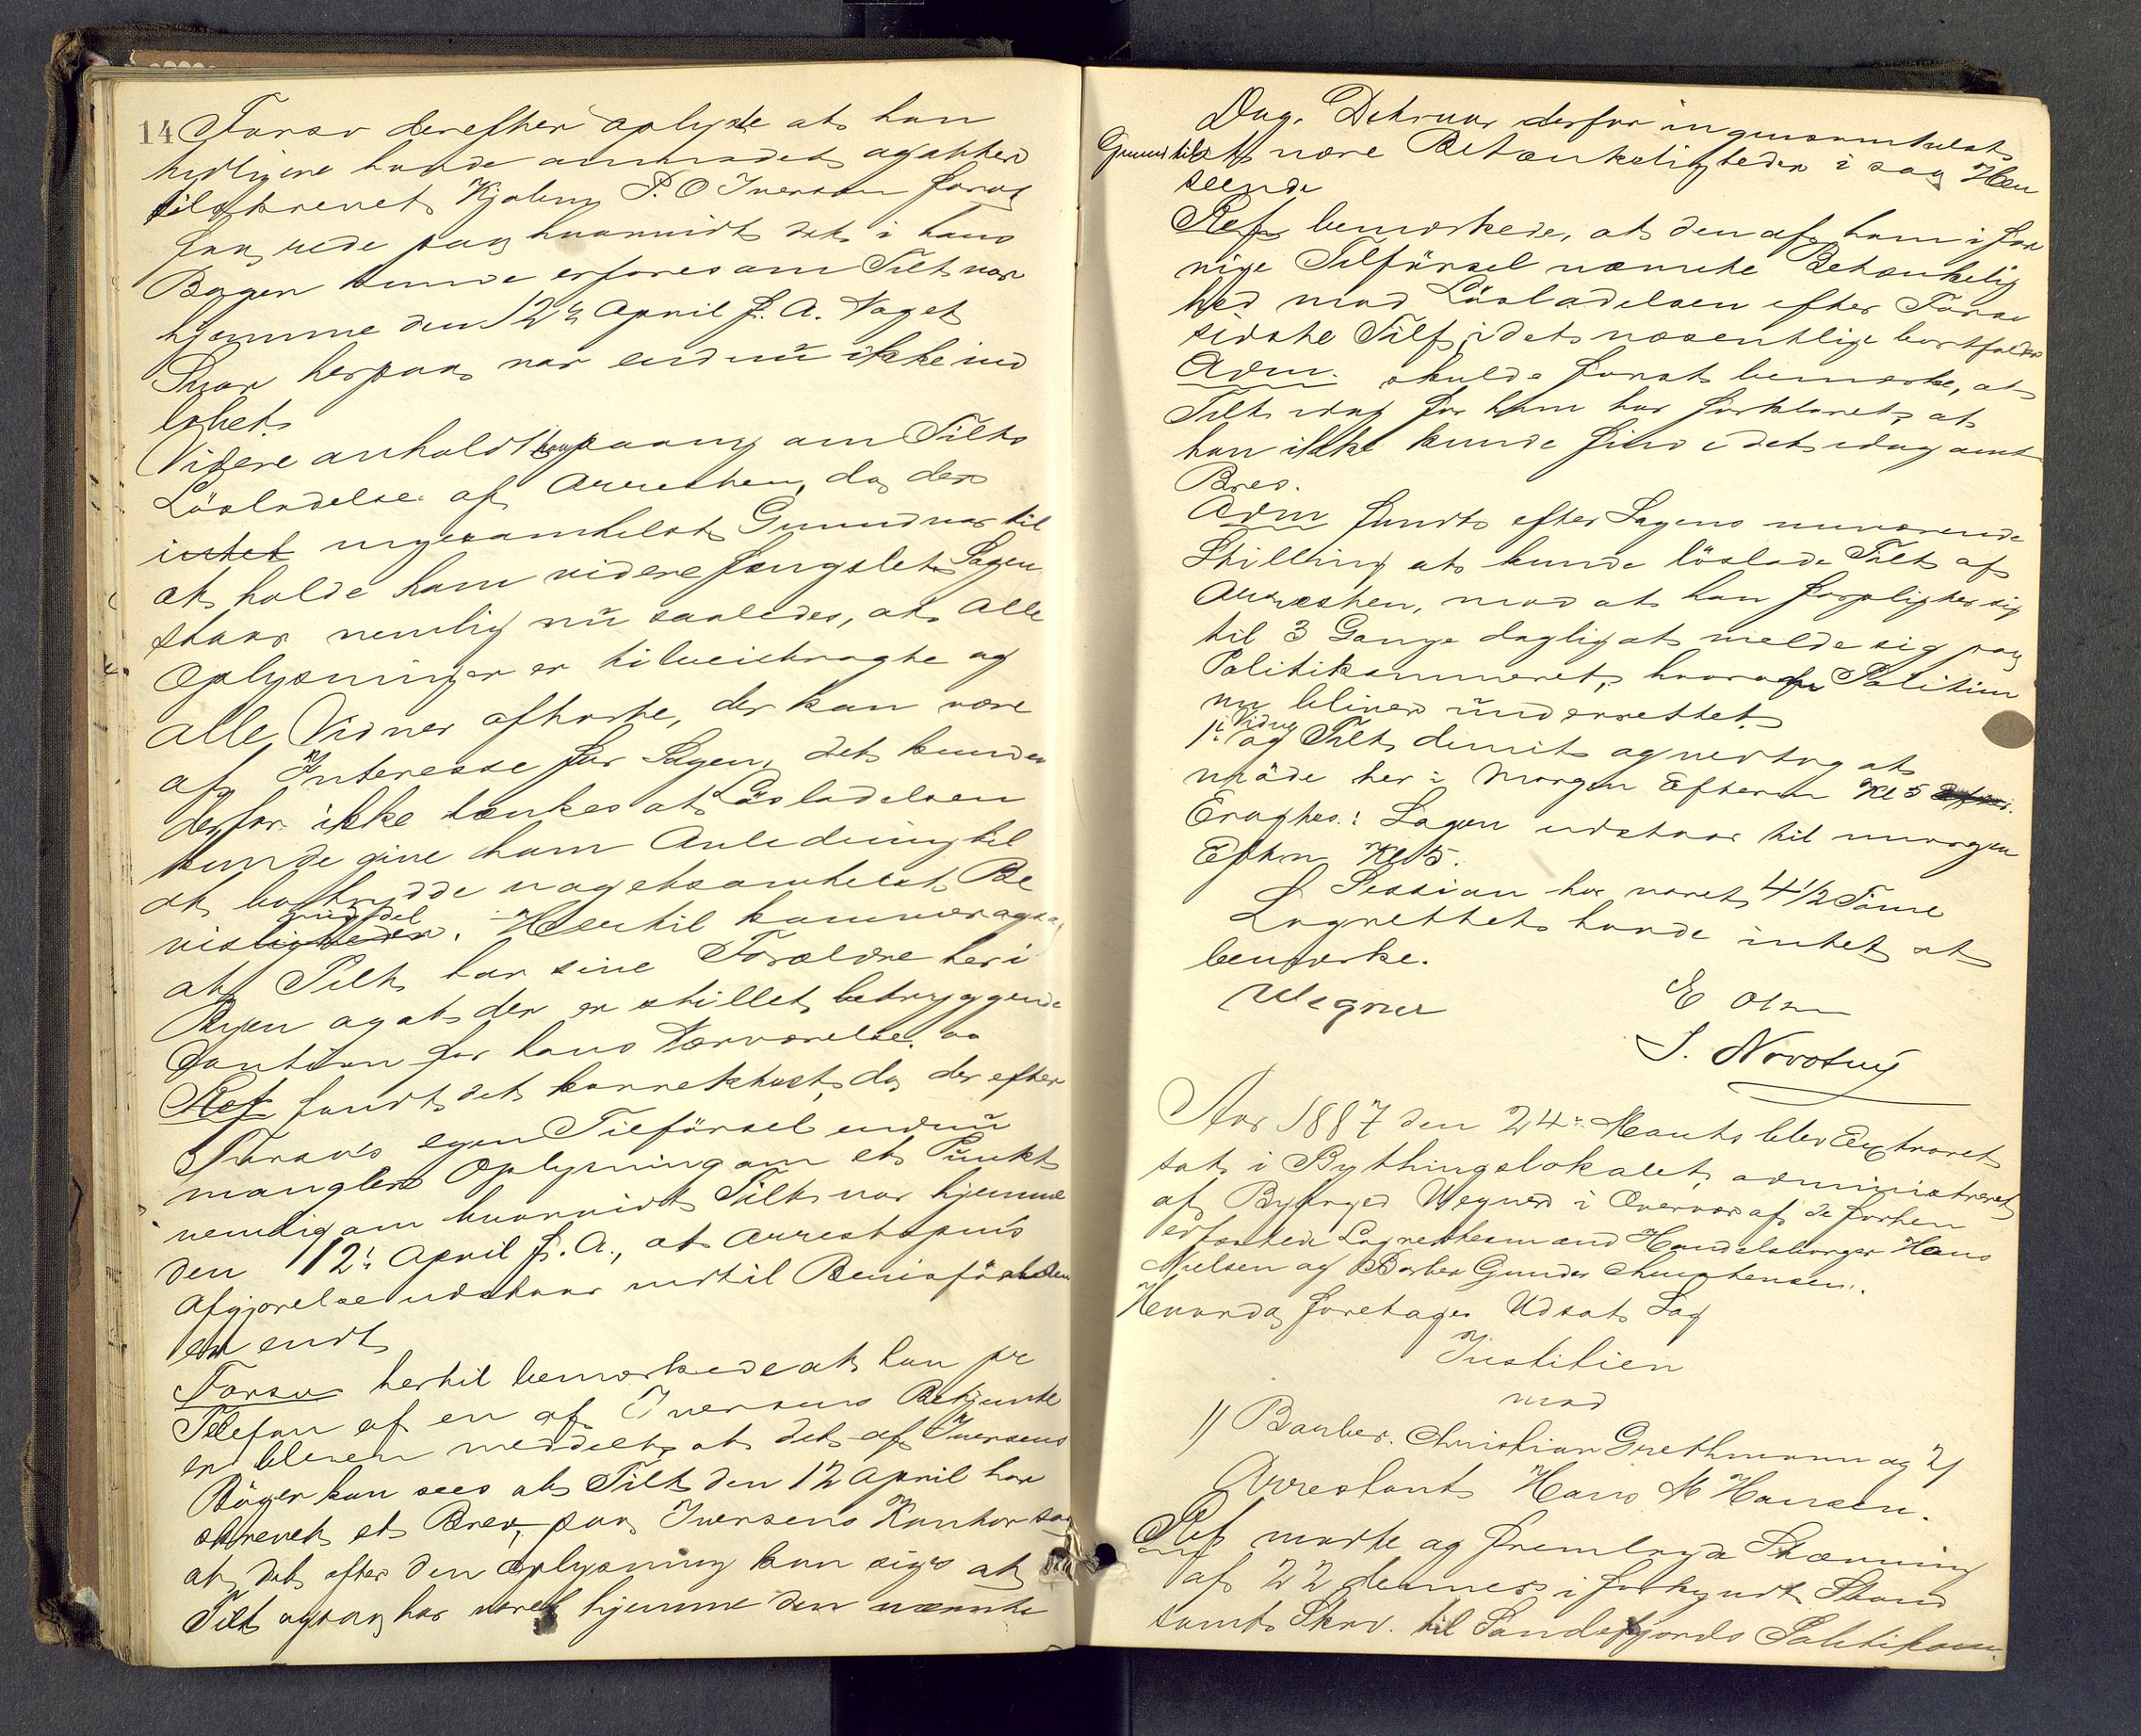 14 Forsv derefter oplyste at han
tidligere havde anmodet og atter
tilskrevet Kjøbm P. O Iversen forat
faa rede paa hvorvidt det i hans
Bøger kunde erfares om Tilt var
hjemme den 12te April f. A. Noget
Svar herpaa var endnu ikke ind
løbet.
Videre anholdt han paany om Tilts
Løsladelse af Arresten, da der
intet ingensomhelst Grund var til
at holde ham videre fængslet. Sagen
staar nemlig nu saaledes, at alle
Oplysninger er tilveiebragte og
alle Vidner afhørte, der kan være
af Interesse for Sagen, det kunde
derfor ikke tænkes at Løsladelsen
kunde give ham Anledning til
at bortrydde nogetsomhelst Be
visligheder. Hertil kommer ogsaa,
at Tilt har sine Forældre her i
Byen og at der er stillet betryggende
Caution for hans Nærværelse.
Ref fandt det korrektest, da der efter
Forsv's egen Tilførsel endnu
mangler Oplysning om et Punkt
nemlig om hvorvidt Tilt var hjemme
den 12te April f. A., at Arrestspms
Afgjørelse udstaar indtil Bevisførselen
er endt
Forsv hertil bemærkede at han pr
Telefon af en af Iversens Betjente
er bleven meddelt, at det af Iversens
Bøger kan sees at Tilt den 12 April har
skrevet et Brev paa Iversens Kontor saa
at det efter den Oplysning kan siges at
Tilt ogsaa har været hjemme den nævnte
Dag. Der var derfor ingensomhelst
Grund til at nære Betænkeligheder i saa Hen
seende
Ref bemærkede, at den af ham i for
rige Tilførsel nævnte Betænkelig
hed mod Løsladelsen efter Forsv
sidste Tilf. idet væsentlige bortfalder
Adm. skulde forat bemærke, at
Tilt idag for ham har forklaret, at
han ikke kunde finde det idag omt
Brev.
Adm fandt efter Sagens nuværende
Stilling at kunde løslade Tilt af
Arresten, mod at han forpligter sig
til 3 Gange daglig at melde sig paa
Politikammeret, hvorom Politiet
nu bliver underrettet.
1te Vidne og Tilt dimit og vedtog at
møde her i Morgen Efterm Kl 5
Eragtes: Sagen udstaar til imorgen
Eftm Kl 5.
Session har varet 4 1/2 Time
Lagrettet havde intet at
bemærke.
Wegner
E Olsen
J. Novotny
Aar 1887 den 24de Marts blev Extraret
sat i Bythingslokalet administreret
af Byfoged Wegner i Overvær af de forhen
edfæstede Lagrettesmænd Handelsborger Hans
Nielsen og Barber Gunder Christensen.
Hvorda foretages Udsat Sag
Justitien
mod
1/ Barber Christian Grethmann og 2/
Arrestant Hans M Hansen.
Ref mødte og fremlagde Stævning
af 22 dennes i forkyndt Stand
samt Skrv. til Sandefjords Politikam.